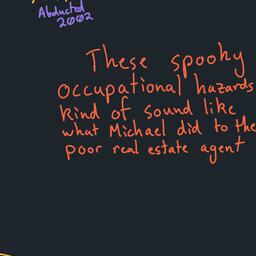 Abducted
2002
These spooky
occupational hazards
kind of sound like
what Michael did to the
poor real estate agent